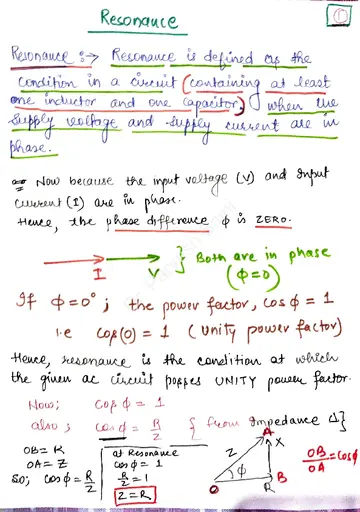 Resonance
1
Resonance :→ Resonance is defined as the
condition in a circuit (containing at least
one inductor and one capacitor), when the
supply voltage and supply current are in
phase.
Now because the input voltage (V) and Input
current (I) are in phase.
Hence, the phase difference ϕ is ZERO.
I V } Both are in phase
(ϕ=0)
If ϕ=0° ; the power factor, cosϕ = 1
i.e cos(0) = 1 (Unity power factor)
Hence, resonance is the condition at which
the given ac circuit posses UNITY power factor.
Now; cosϕ = 1
also; cosϕ = R/Z { from Impedance Δ}
OB = R
OA = Z
So; cosϕ = R/Z
at Resonance
cosϕ = 1
R/Z = 1
Z = R
A
Z X
ϕ
O R B
OB/OA = cosϕ